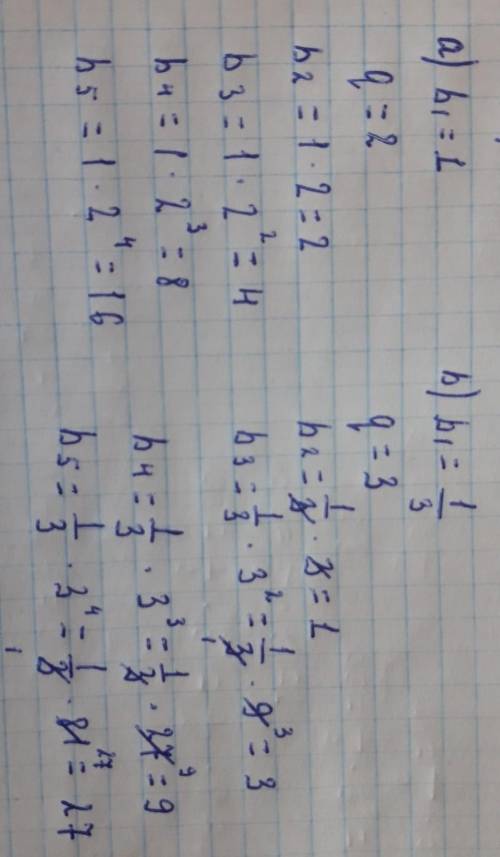 a) b₁ = 1
q = 2
b₂ = 1 · 2 = 2
b₃ = 1 · 2² = 4
b₄ = 1 · 2³ = 8
b₅ = 1 · 2⁴ = 16
b) b₁ = 1/3
q = 3
b₂ = 1/3 · 3 = 1
b₃ = 1/3 · 3² = 1/3 · 9 3 = 3
b₄ = 1/3 · 3³ = 1/3 · 27 9 = 9
b₅ = 1/3 · 3⁴ = 1/3 · 81 27 = 27